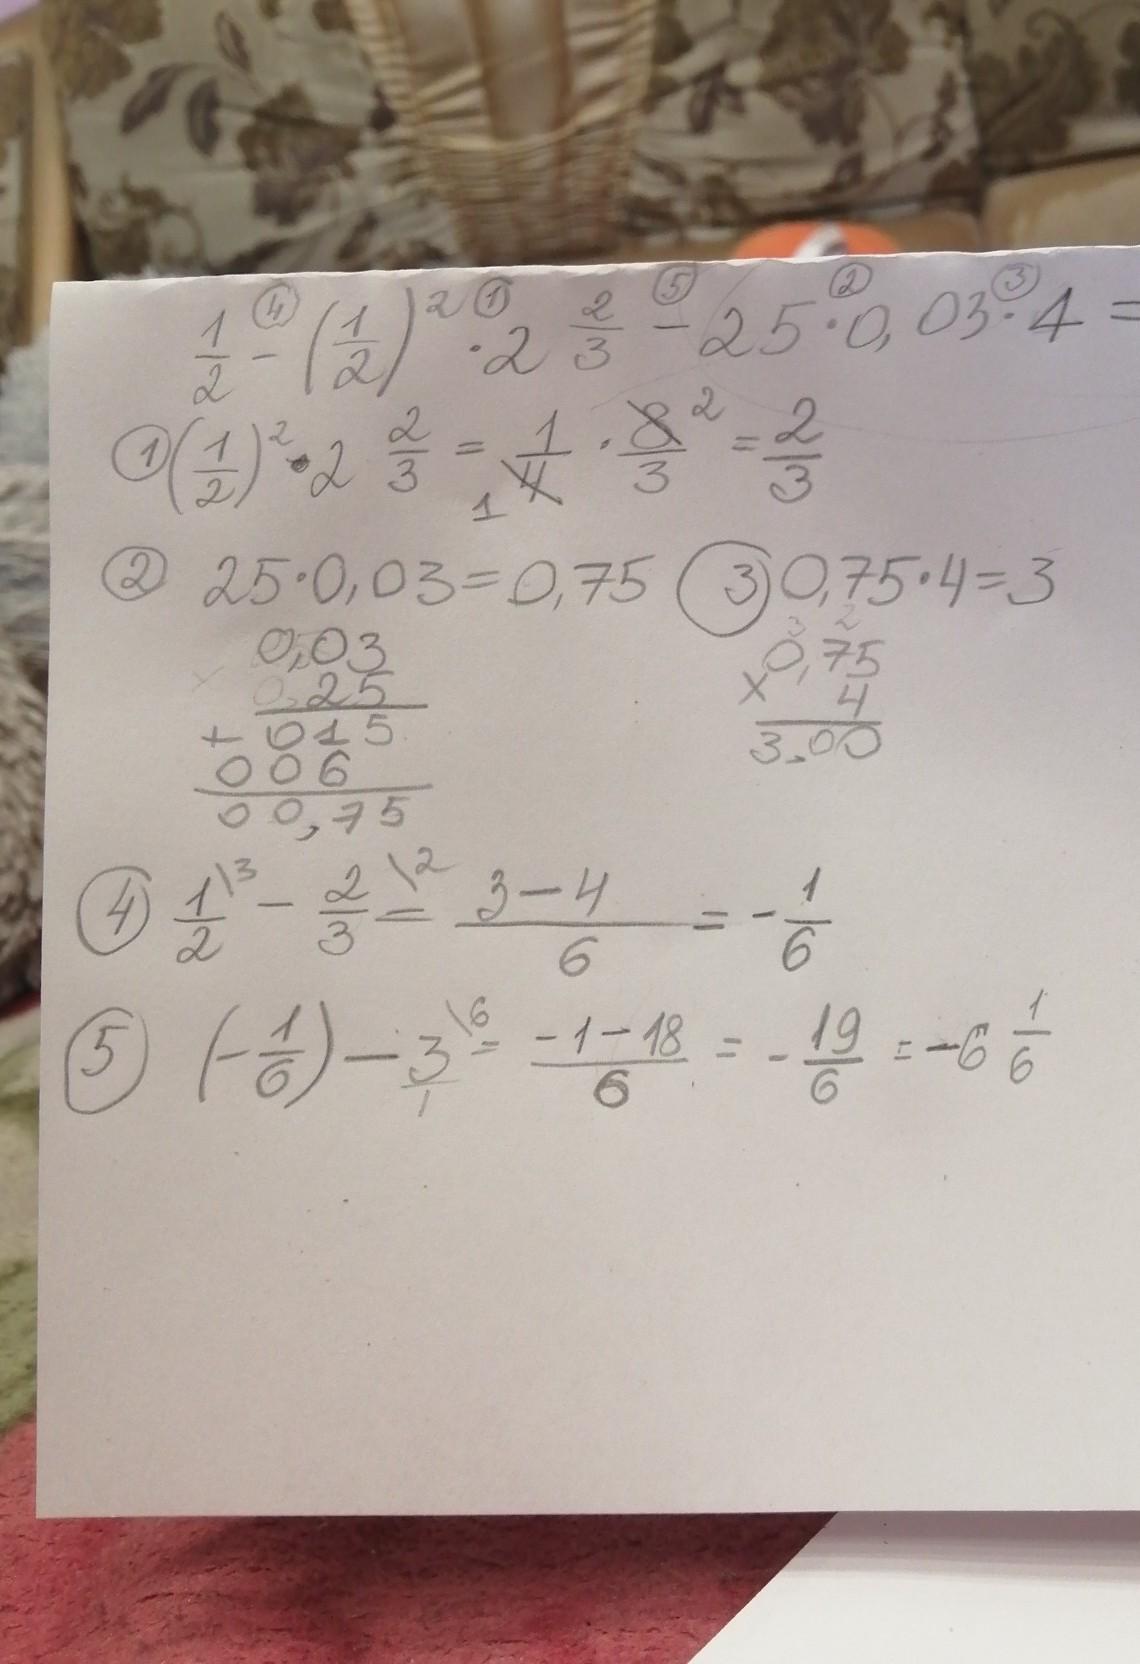 1/2 ④ - (1/2)² ① · 2 2/3 ⑤ - 25 ② · 0,03 ③ · 4 =
① (1/2)² · 2 2/3 = 1/4 1 · 8/3 2 = 2/3
② 25 · 0,03 = 0,75 ③ 0,75 · 4 = 3
3 2
0,03 0,75
× 0,25 × 4
+ 015 3,00
006
00,75
④ 1/2 \3 - 2/3 \2 = 3 - 4/6 = - 1/6
⑤ (- 1/6) - 3/1 \6 = -1 - 18/6 = - 19/6 = -6 1/6